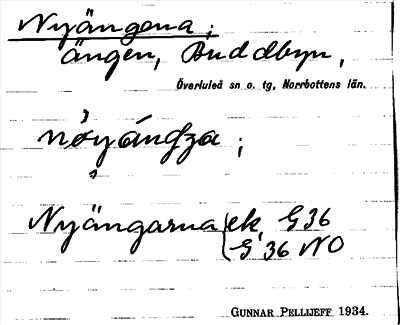 Nyängena;
ängen, Buddbyn,
Överluleå sn o. tg, Norrbottens län.
Nyängarna ek G 36
G 36 NO
GUNNAR PELLIJEFF 1934.